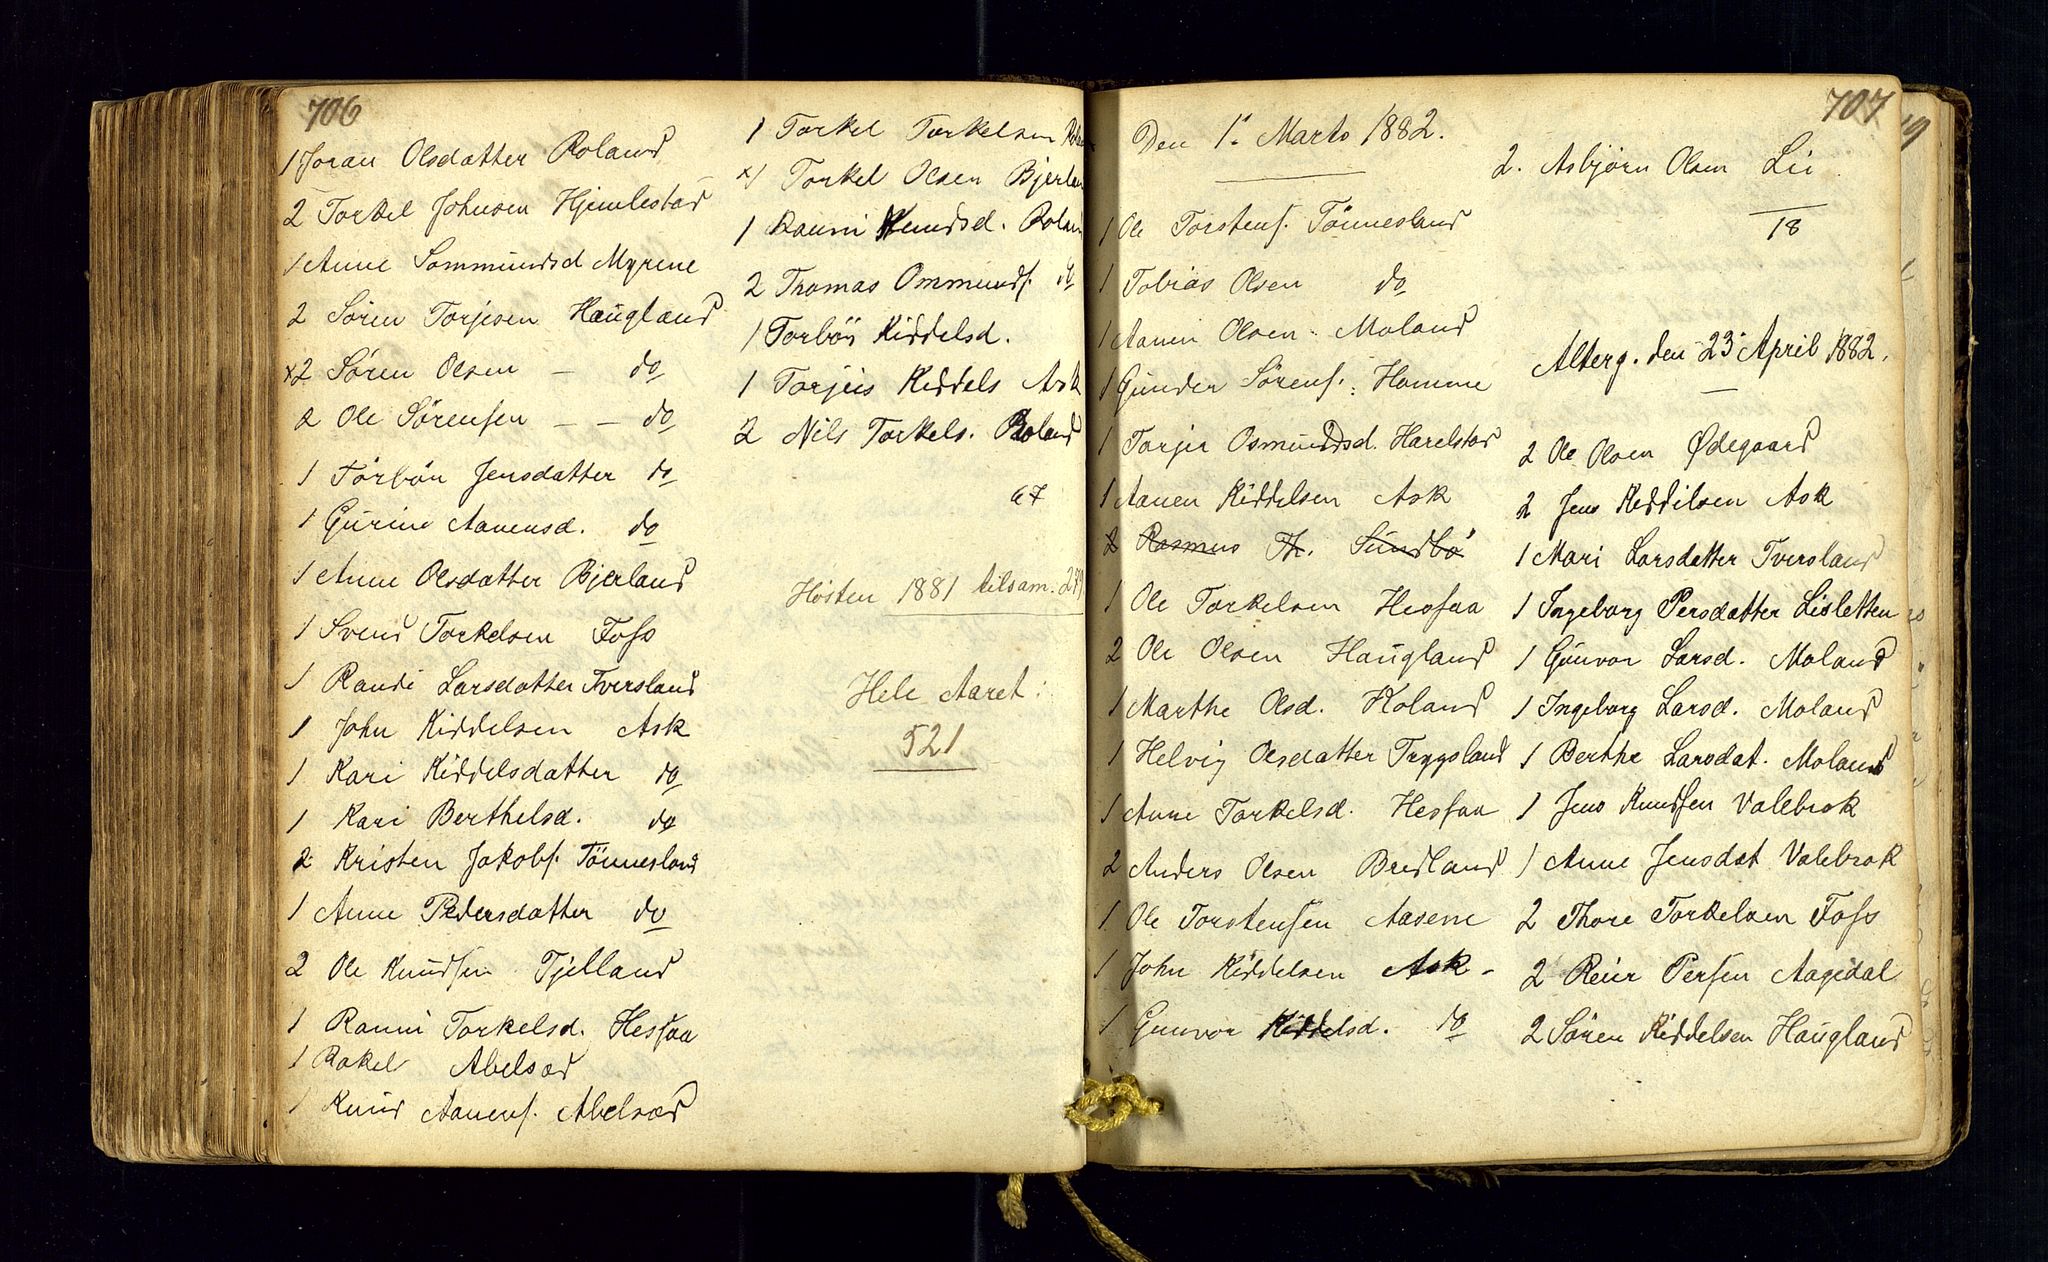 706
1 Joran Olsdatter Roland
2 Torkel Johnsen Hjemlestad
1 Anne Sommundsd Myrene
2 Sören Torjesen Haugland
x2 Sören Olsen — do
2 Ole Sörensen — — do
1 Törbön Jensdatter do
1 Gurine Aanensd. do
1 Anne Olsdatter Bjerland
1 Svend Torkelsen Foss
1 Randi Larsdatter Tversland
1 John Kiddelsen Ask
1 Kari Kiddelsdatter do
1 Kari Berthelsd. do
2 Kristen Jakobs. Tönnesland
1 Anne Pedersdatter do
2 Ole Knudsen Tjelland
1 Ranni Torkelsd. Hesfaa
1 Rakel Abelsæd
1 Knud Aanens. Abelsæd
1 Torkel Torkelsen
x1 Torkel Olsen Bjerlan
1 Ranni Knudsd. Rolan
2 Thomas Ommunds. do
1 Torbör Kiddelsd.
1 Torjus Kiddels Ask
2 Nils Torkels. Roland
67
Høsten 1881 tilsam.
Hele Aaret:
521
707
Den 1. Marts 1882.
1 Ole Torstens. Tönnesland
1 Tobias Olsen do
1 Aanen Olsen Moland
1 Gunder Sörens. Homme
1 Torjer Osmundsd. Harelstad
1 Aanen Kiddelsen Ask
2 Rasmus Th. Sundbö
1 Ole Torkelsen Hesfaa
2 Ole Olsen Haugland
1 Marthe Olsd. Holand
1 Helvig Olsdatter Trygsland
1 Anne Torkelsd. Hesfaa
2 Anders Olsen Bredland
1 Ole Torstensen Aasene
1 John Kiddelsen Ask -
1 Gunvor Kiddelsd. do
2. Asbjörn Olsen Lii
18
Alterg. den 23 April 1882.
2 Ole Olsen Ødegaard
2 Jens Keddilsen Ask
1 Mari Larsdatter Tversland
1 Ingeborg Persdatter Lisletten
1 Gunvor Larsd. Moland
1 Ingeborg Larsd. Moland
1 Berthe Larsdat. Moland
1 Jens Knudsen Valebrok
1 Anne Jensdat Valebrok
2 Thore Torkelsen Foss
2 Reier Persen Aagedal
2 Sören Kiddelsen Haugland